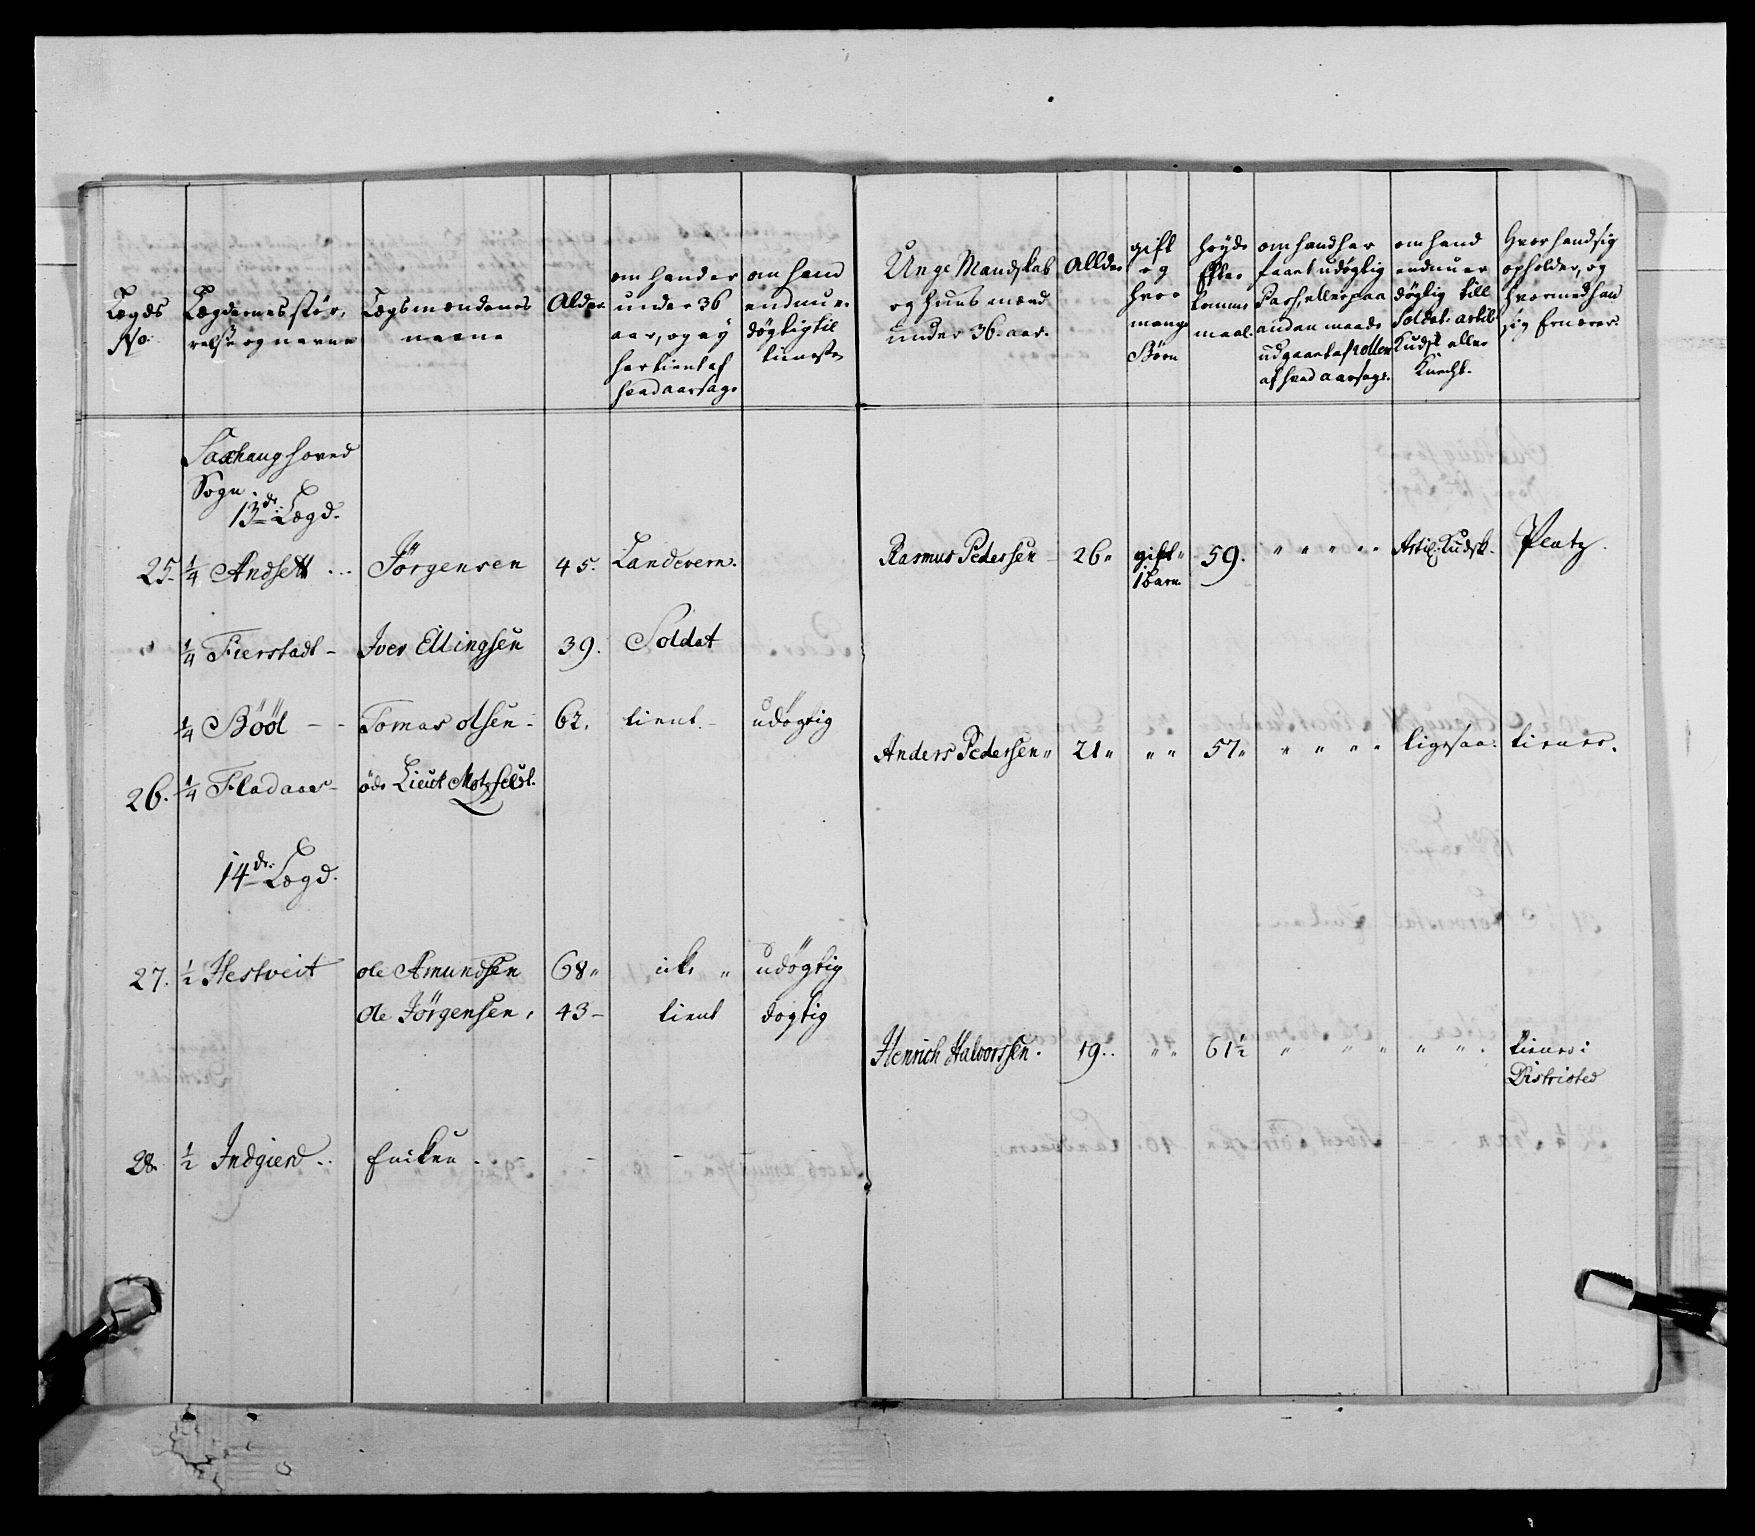 Lægds No:
Lægdernes stør,
relse og navne
Lægsmændenes
navne
Alder.
om han der
under 36
aar, og ey
har tient af
hvad aarsag.
om hand
endnu er
døgtig til
tieneste
Unge Mandskab
og huusmænd
under 36. aar.
Allder
gift
og
hvor
mange
Børn
høyde
Efter
komme
maal.
om hand har
faaet udøgtig
Pass, eller paa
andan maade
udgaaet af rollen
af hvad aarsag.
om hand
endnu er
døgtig till
Soldat. artil
Kudsk eller
Knecht.
Hvor hand sig
opholder, og
hvormed han
sig Ernærer.
Saxhaug hoved
Sogn.
13de Lægd.
25. 1/4 Andsett ... Jörgensen 45. Landevern. Rasmus Pedersen 26" gift" 1 barn. 59. " " " " Artil. Kudsk. Platz.
1/4 Fierstadt - Iver Ellingsen 39. Soldat
1/4 Bööl - - Tomas Olsen - 62. tient - udøgtig
Anders Pedersen" 21" " " 57" " " " " ligesaa: tiener.
26. 1/4 Fladaas - öde Lieut Motzfeldt.
14de Lægd.
27. 1/2 Hestveit Ole Amundsen 68" icke " udøgtig
Ole Jörgensen, 43 - tient dogtig
Henrich Halvorssen. 19.. " " 61 1/2 " " " " " tiener i
Districted
28. 1/2 Indgierd .. Encken - - - - -